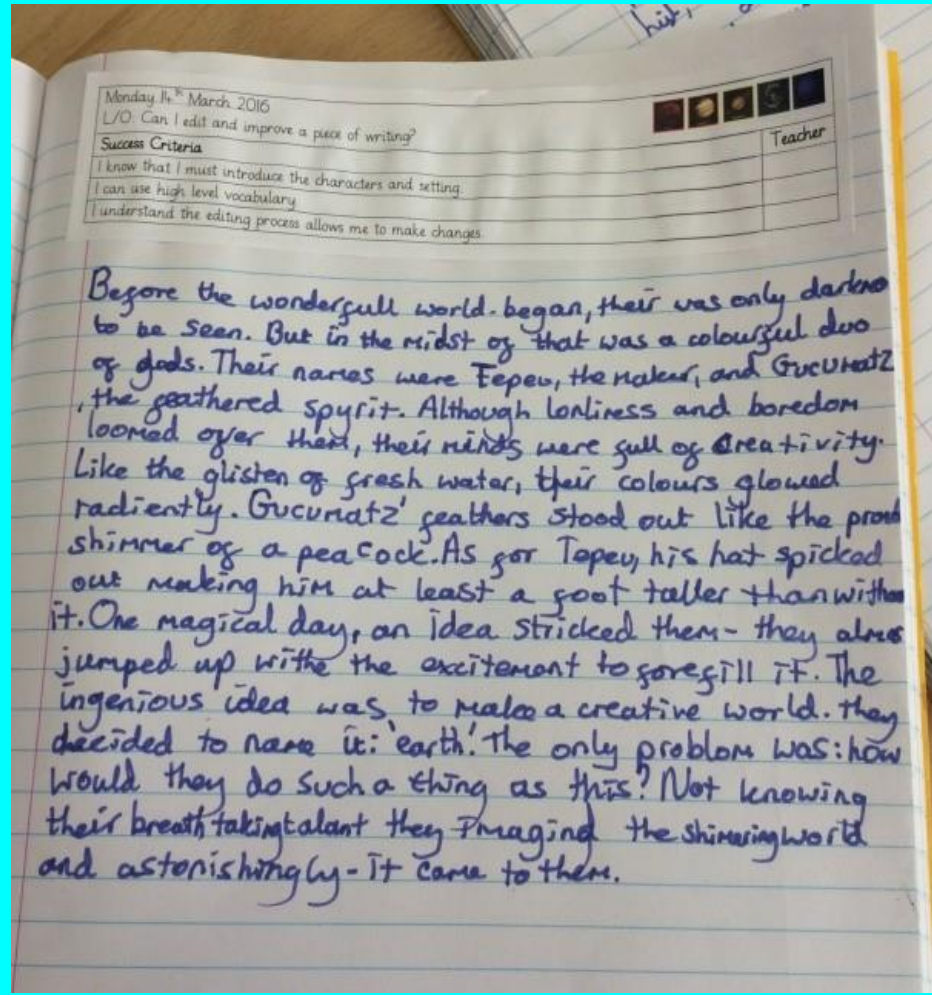 hist,
Monday 14th March 2016
L/O: Can I edit and improve a piece of writing?
Success Criteria
Teacher
I know that I must introduce the characters and setting.
I can use high level vocabulary
I understand the editing process allows me to make changes.
Before the wonderfull world. began, their was only darkne
to be seen. But in the midst of that was a colourful duo
of gods. Their names were Tepeu, the maker, and Gucumatz
, the feathered spyrit. Although lonliness and boredom
loomed over them, their minds were full of creativity.
Like the glisten of fresh water, their colours glowed
radiently. Gucumatz' feathers stood out like the proud
shimmer of a peacock. As for Tepeu, his hat spicked
out making him at least a foot taller than witho
it. One magical day, an idea stricked them - they almos
jumped up withe the excitement to forefill it. The
ingenious idea was to make a creative world. they
decided to name it: 'earth'. The only problom was: how
would they do such a thing as this? Not knowing
their breath takingtalant they imagind the shimering world
and astonishingly - it came to them.